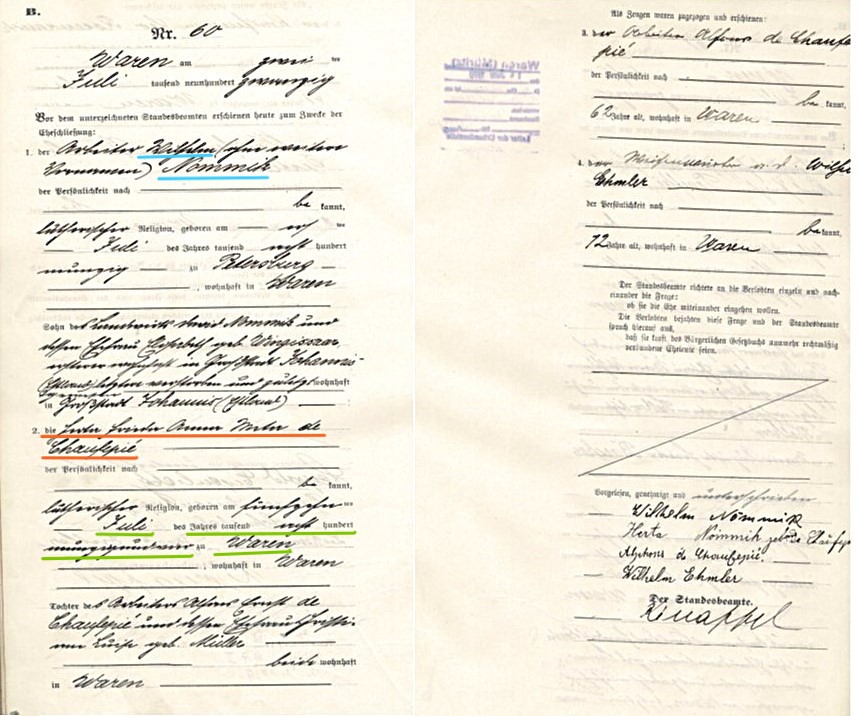 B.
Nr. 60
Waren am zwei ten
Juli tausend neunhundert zwanzig
Vor dem unterzeichneten Standesbeamten erschienen heute zum Zwecke der
Eheschließung:
1. der Arbeiter Wilhelm (ohne weitere
Vornamen) Nommik
der Persönlichkeit nach
be kannt,
lutherischer Religion, geboren am
Juli des Jahres tausend acht hundert
neunzig zu Petersburg
, wohnhaft in Waren
Sohn des Landwirts David Nommik und
dessen Ehefrau Elisabeth geb.
wohnhaft in Großstadt Johannis
(Estland) letztere verstorben und zuletzt wohnhaft
in Großstadt Johannis (Estland)
2. die Herta Frieda Anna Meta de
Chaufepié
der Persönlichkeit nach
be kannt,
lutherischer Religion, geboren am fünfzehn ten
Juli des Jahres tausend acht hundert
neunzigundvier zu Waren
, wohnhaft in Waren
Tochter des Arbeiters Alfons Ernst de
Chaufepié und dessen Ehefrau Christi-
ane Luise geb. Müller
beide wohnhaft
in Waren
Als Zeugen waren zugezogen und erschienen:
3. der Arbeiter Alfons de Chaufe-
pié
der Persönlichkeit nach
be kannt,
62 Jahre alt, wohnhaft in Waren
4. der a. D. Wilhelm
Ehmler
der Persönlichkeit nach
be kannt,
72 Jahre alt, wohnhaft in Waren
Der Standesbeamte richtete an die Verlobten einzeln und nach-
einander die Frage:
ob sie die Ehe miteinander eingehen wollen.
Die Verlobten bejahten diese Frage und der Standesbeamte
sprach hierauf aus,
daß sie kraft des Bürgerlichen Gesetzbuchs nunmehr rechtmäßig
verbundene Eheleute seien.
Vorgelesen, genehmigt und unterschrieben
Wilhelm Nömmik
Herta Nömmik geb. de Chaufepié
Alphons de Chaufepié.
Wilhelm Ehmler
Der Standesbeamte.